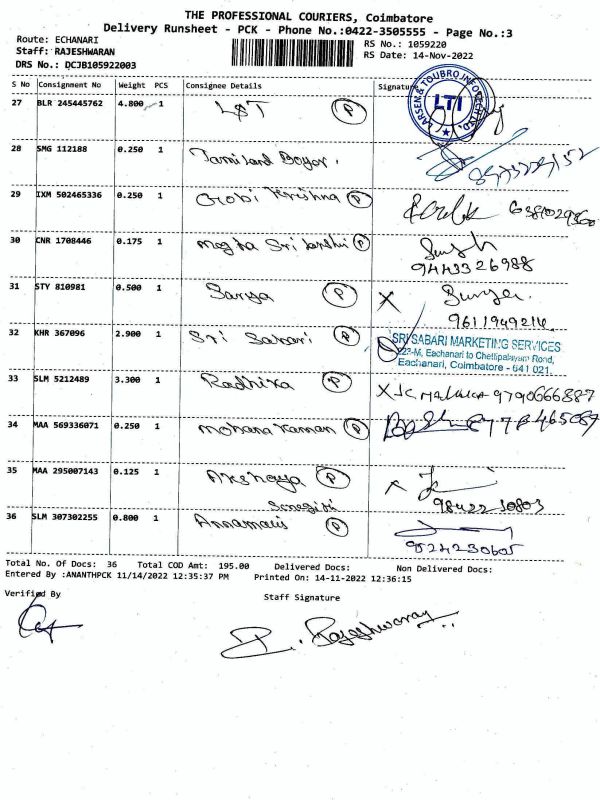 THE PROFESSIONAL COURIERS, Coimbatore
Delivery Runsheet - PCK - Phone No.:0422-3505555 - Page No.:3
Route: ECHANARI
RS No.: 1059220
Staff: RAJESHWARAN
RS Date: 14-Nov-2022
DRS No.: DCJB105922003
S No Consignment No Weight PCS Consignee Details Signature
27 BLR 245445762 4.800 1 L&T P
LARSEN & TOUBRO INFOTECH LTD.
LTI
28 SMG 112188 0.250 1
29 IXM 502465336 0.250 1 Gobi Krishna P
30 CNR 1708446 0.175 1 P
9443326988
31 STY 810981 0.500 1 Sanya P X
9611949214
32 KHR 367096 2.900 1 Sri Sabari P
SRI SABARI MARKETING SERVICES
223-M, Eachanari to Chettipalayam Road,
Eachanari, Coimbatore - 641 021.
33 SLM 5212489 3.300 1 Radhika P X 9790666887
34 MAA 569336071 0.250 1 Mohana Raman P
35 MAA 295007143 0.125 1 Akshaya P X
9842230803
36 SLM 307302255 0.800 1 Annamalai P
9524230605
Total No. Of Docs: 36 Total COD Amt: 195.00 Delivered Docs: Non Delivered Docs:
Entered By :ANANTHPCK 11/14/2022 12:35:37 PM Printed On: 14-11-2022 12:36:15
Verified By
Staff Signature
R. Rajeshwaran